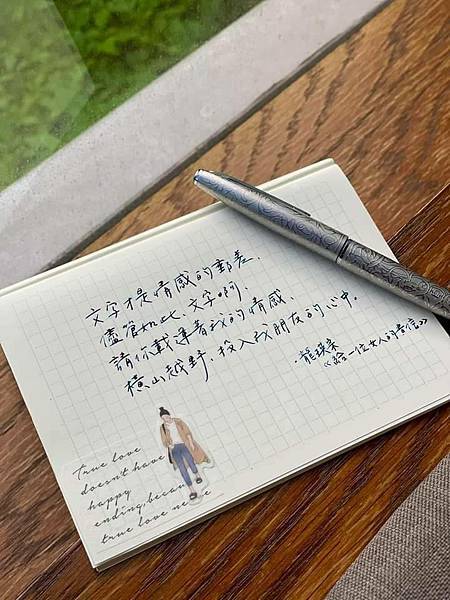 文字才是情感的郵差、
儘管如此、文字啊、
請你載運著我的情感、
橫山越野、投入我朋友的心中。
龍瑛宗
《給一位女人的書信》
True love
doesn't have
happy
ending, becau
true love ne